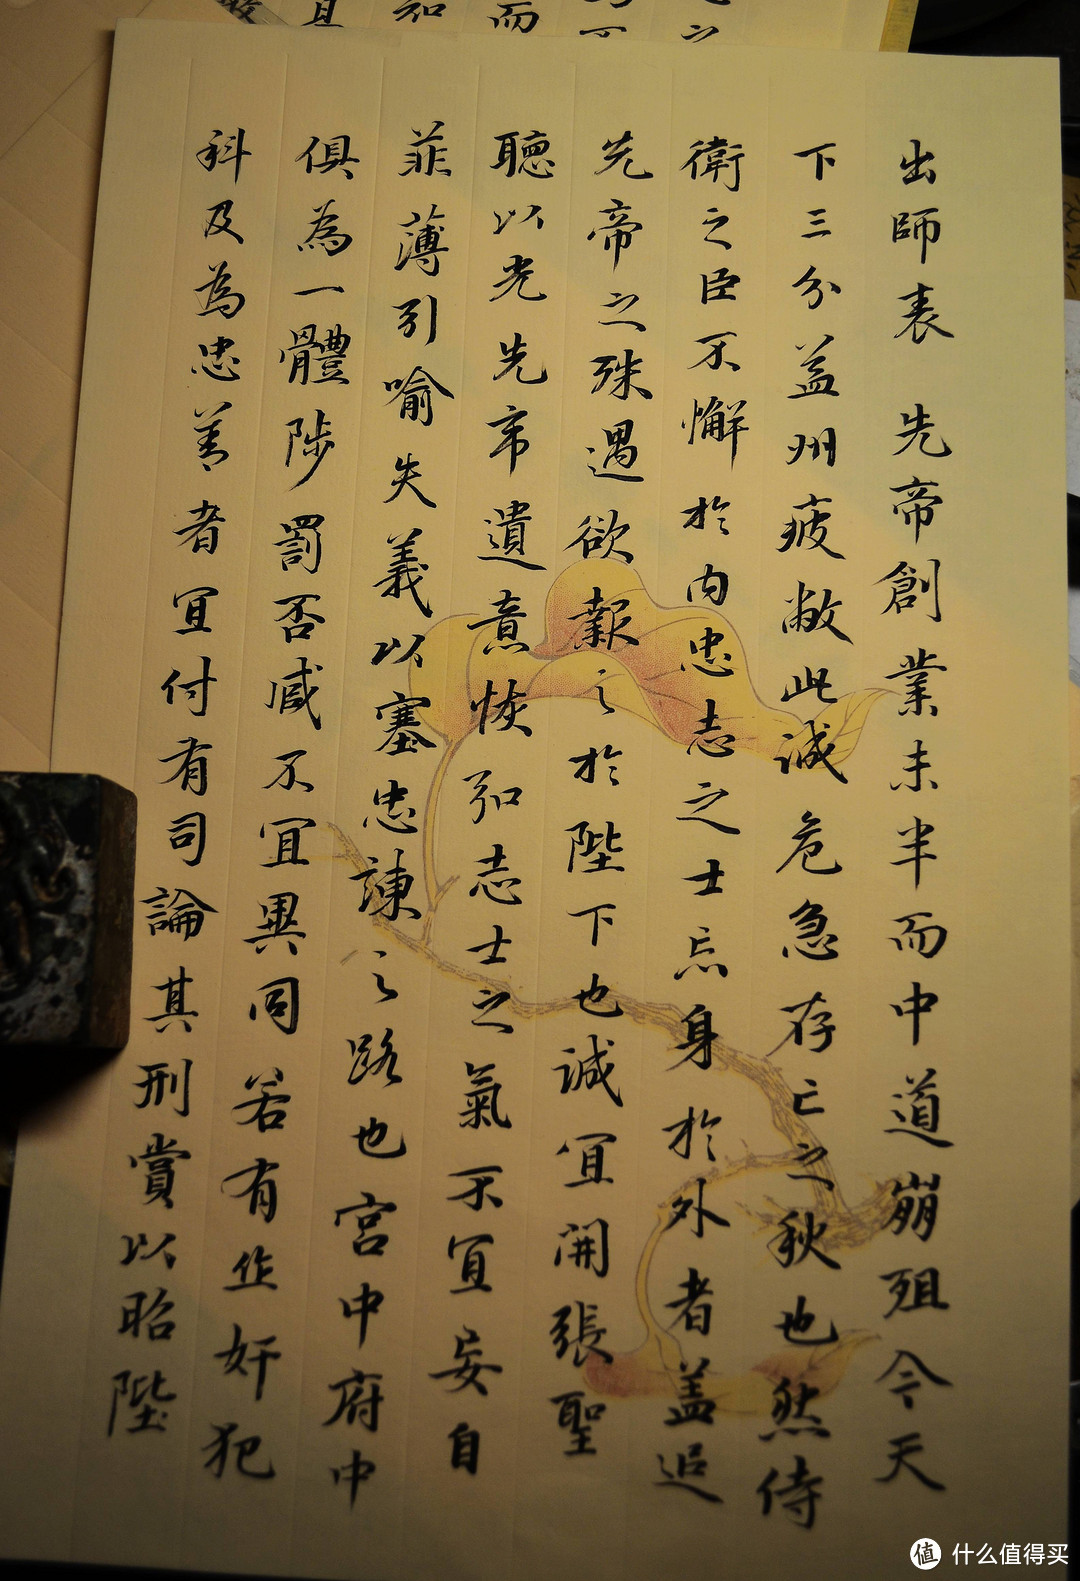 出師表 先帝創業未半而中道崩殂今天
下三分益州疲敝此誠危急存亡之秋也然侍
衛之臣不懈於内忠志之士忘身於外者盖追
先帝之殊遇欲報之於陛下也誠宜開張聖
聽以光先帝遺意恢弘志士之氣不宜妄自
菲薄引喻失義以塞忠諫之路也宮中府中
俱為一體陟罰否臧不宜異同若有作奸犯
科及為忠善者宜付有司論其刑賞以昭陛
值 什么值得买